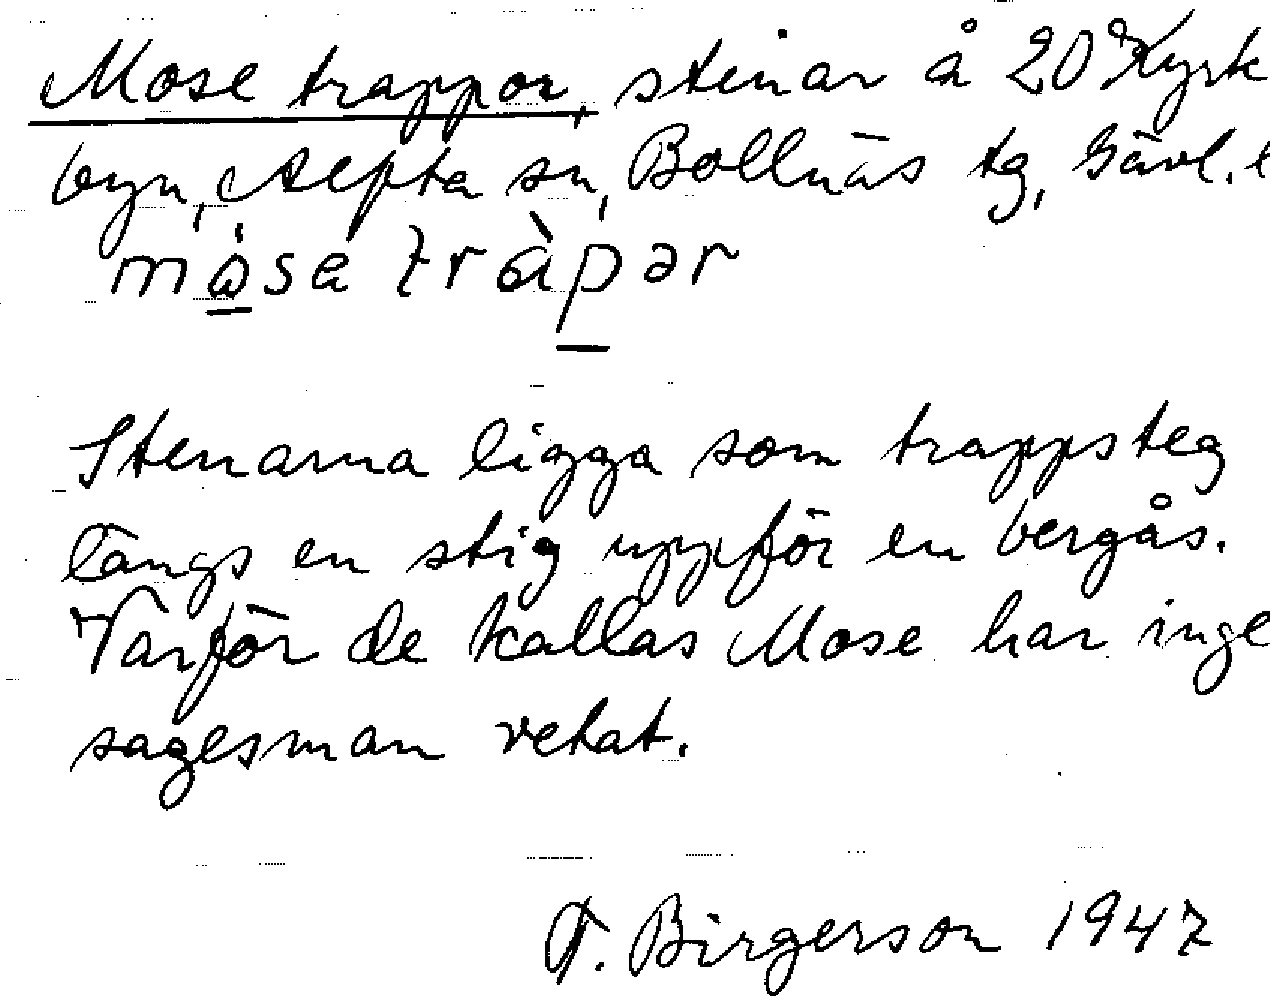 Mose trappor, stenar å 20° Kyrk
byn, Alfta sn, Bollnäs tg, Gävl. l
mose trapər
Stenarna ligga som trappsteg
längs en stig uppför en bergås.
Varför de kallas Mose har inge
sagesman vetat.
T. Birgerson 1947